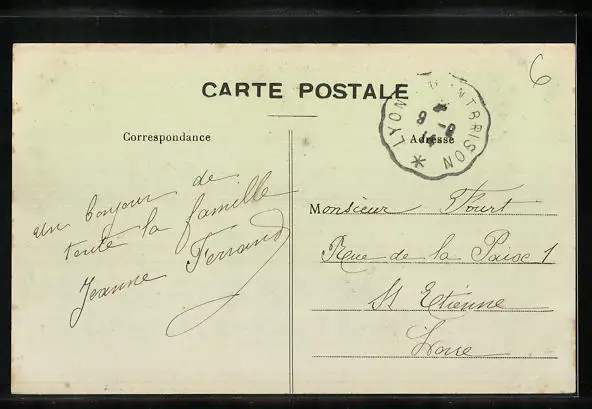 6
CARTE POSTALE
LYON MONTBRISON *
Correspondance
Adresse
un bonjour de
toute la famille
Jeanne Ferrand
Monsieur Fourt
Rue de la Paix 1
St Etienne
Loire